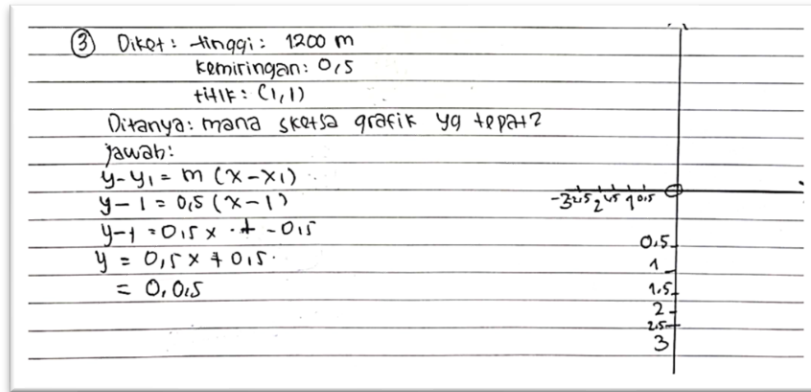 ③ Diket: tinggi: 1200 m
kemiringan: 0,5
titik: (1,1)
Ditanya: mana sketsa grafik yg tepat?
jawab:
y - y₁ = m (x - x₁)
y - 1 = 0,5 (x - 1)
y - 1 = 0,5 x · + - 0,5
y = 0,5 x + 0,5.
= 0,0,5
-3 2,5 2 1,5 1 0,5
0,5
1
1,5
2
2,5
3